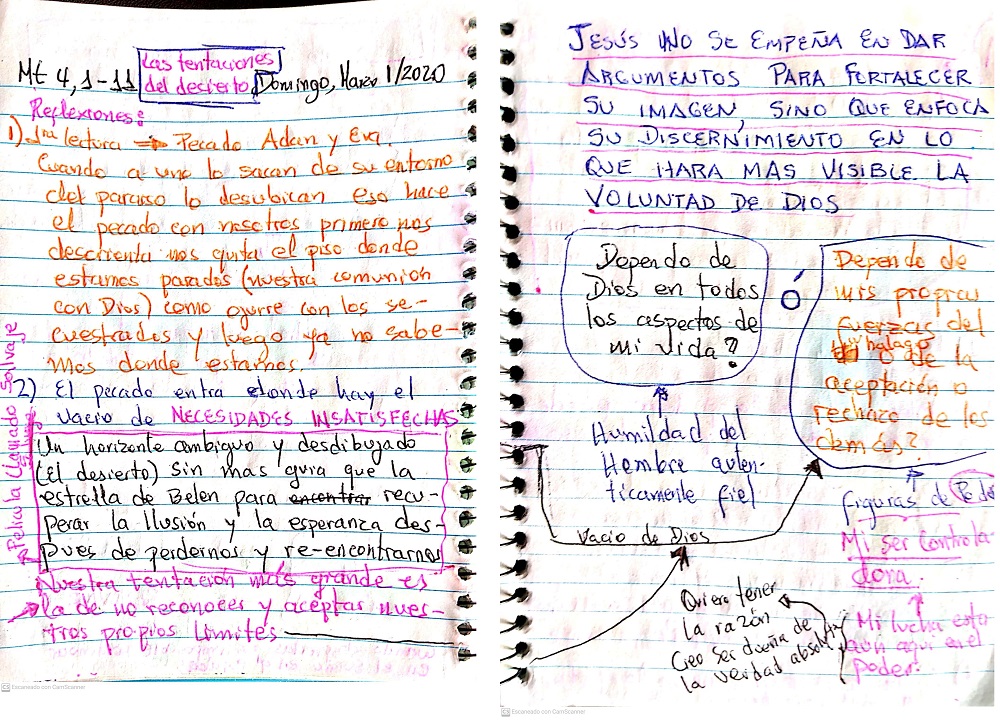 Mt 4, 1-11
Las tentaciones
del desierto
Domingo, Marzo 1/2020
Reflexiones:
1) 1ra lectura => Pecado Adan y Eva.
Cuando a uno lo sacan de su entorno
del paraiso lo desubican eso hace
el pecado con nosotros primero nos
desorienta nos quita el piso donde
estamos parados (nuestra comunión
con Dios) como ocurre con los se-
cuestrados y luego ya no sabe-
mos donde estamos.
2) El pecado entra donde hay el
vacio de NECESIDADES INSATISFECHAS
Un horizonte ambiguo y desdibujado
(El desierto) sin mas guia que la
estrella de Belen para encontrar recu-
perar la Ilusión y la esperanza des-
pues de perdernos y re-encontrarnos
Pelicula Llamado Salvaje
Nuestra tentación más grande es
la de no reconocer y aceptar nues-
tros propios Límites
CS Escaneado con CamScanner
JESÚS NO SE EMPEÑA EN DAR
ARGUMENTOS PARA FORTALECER
SU IMAGEN, SINO QUE ENFOCA
SU DISCERNIMIENTO EN LO
QUE HARA MAS VISIBLE LA
VOLUNTAD DE DIOS
Dependo de
Dios en todos
los aspectos de
mi vida?
Ó
Dependo de
mis propias
fuerzas del
halago
o de la
aceptación o
rechazo de los
demás?
Humildad del
Hombre auten-
ticamente fiel
figuras de
Vacio de Dios
Mi ser controla-
dora.
Quiero tener
la razón
Creo ser dueña de
la verdad absoluta
Mi lucha esta
aun aqui en el
poder.
CS Escaneado con CamScanner